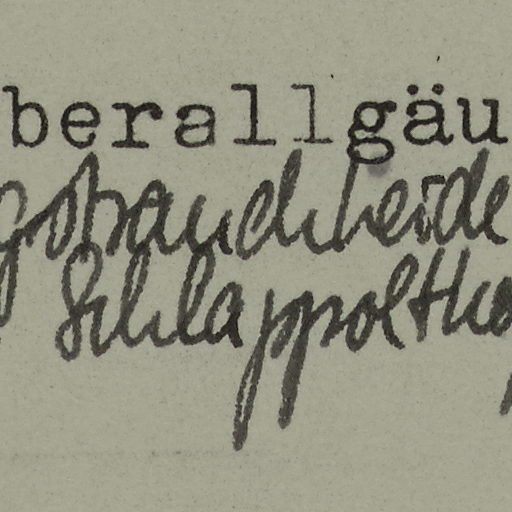 berallgäu
gstrauchheide
Schlappoltho